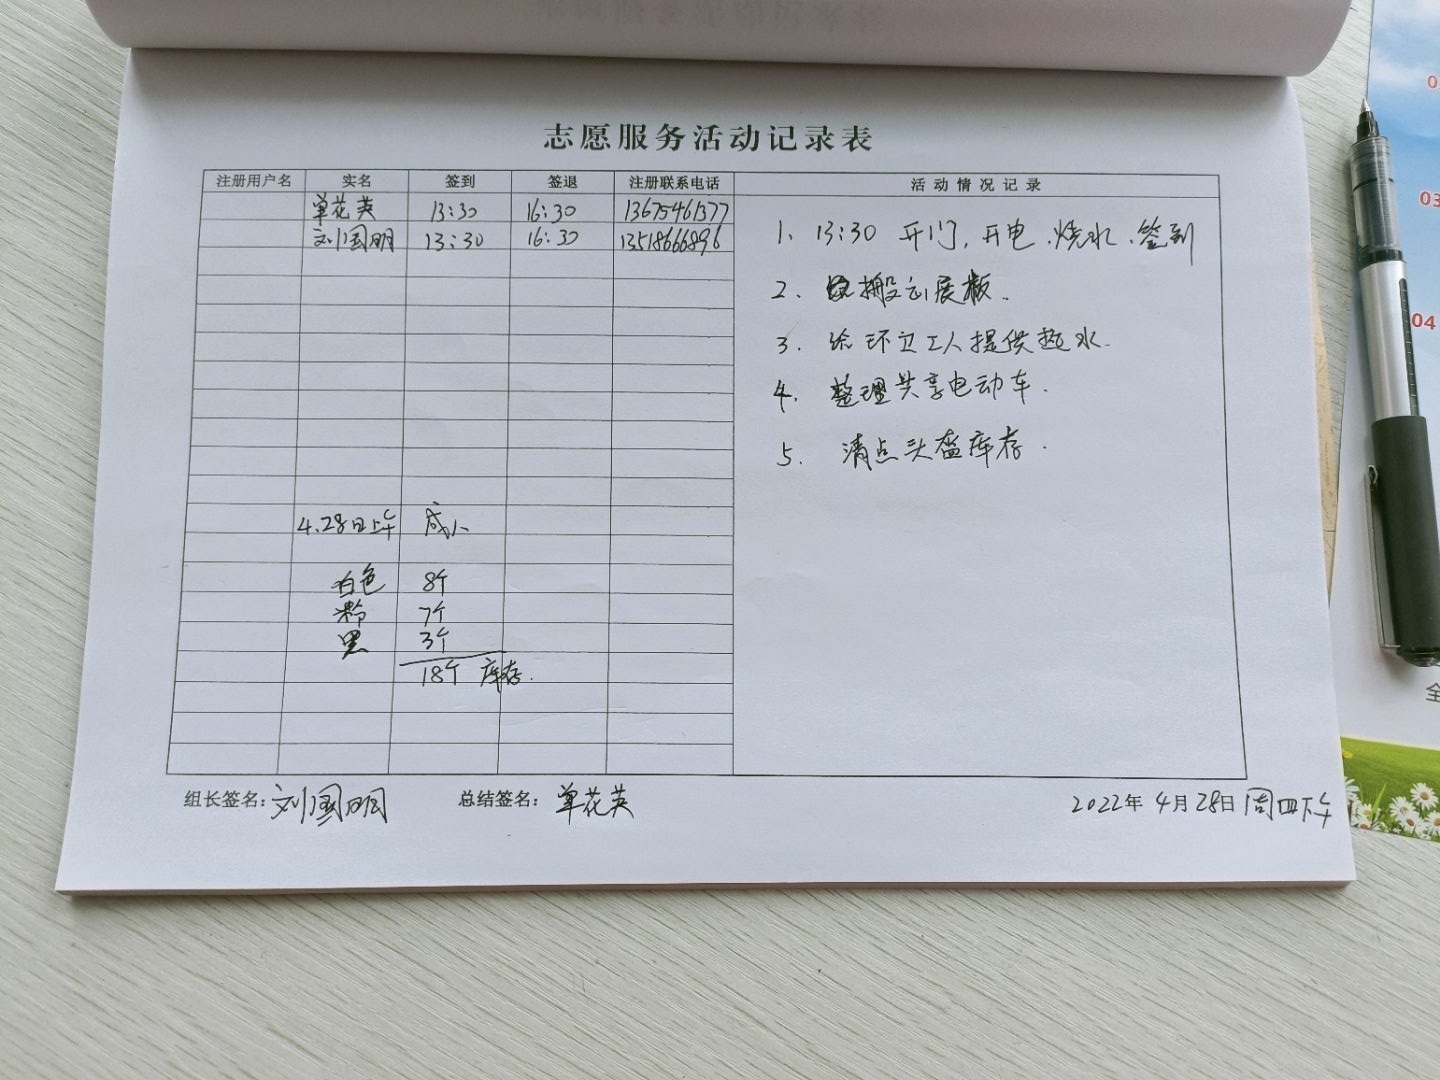 志愿服务活动记录表
注册用户名 实名 签到 签退 注册联系电话 活动情况记录
单花英 13:30 16:30 13675461377
刘国明 13:30 16:30 13518666896
1. 13:30 开门, 开电、烧水、签到
2. 搬运展板.
3. 给环卫工人提供热水.
4. 整理共享电动车.
5. 清点头盔库存.
4.28日上午 成人
白色 8个
粉 7个
黑 3个
18个 库存.
组长签名: 刘国明 总结签名: 单花英 2022年 4月 28日 周四下午
03
04
全